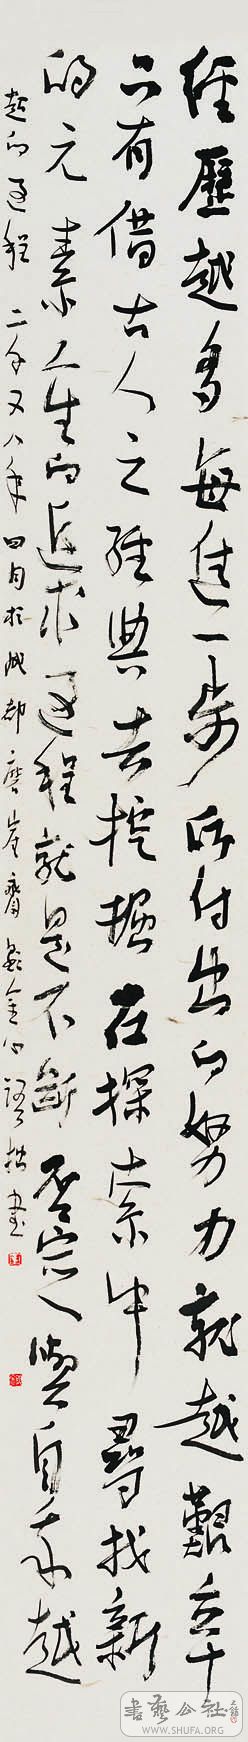 經歷越多每進一步所付出的努力就越艱辛
只有借古人之經典去挖掘在探索中尋找新
的元素人生的追求過程就是不斷否定與自我超
越的過程 二千又八年四月於成都摩崖齋 書
書藝公社
WWW.SHUFA.ORG